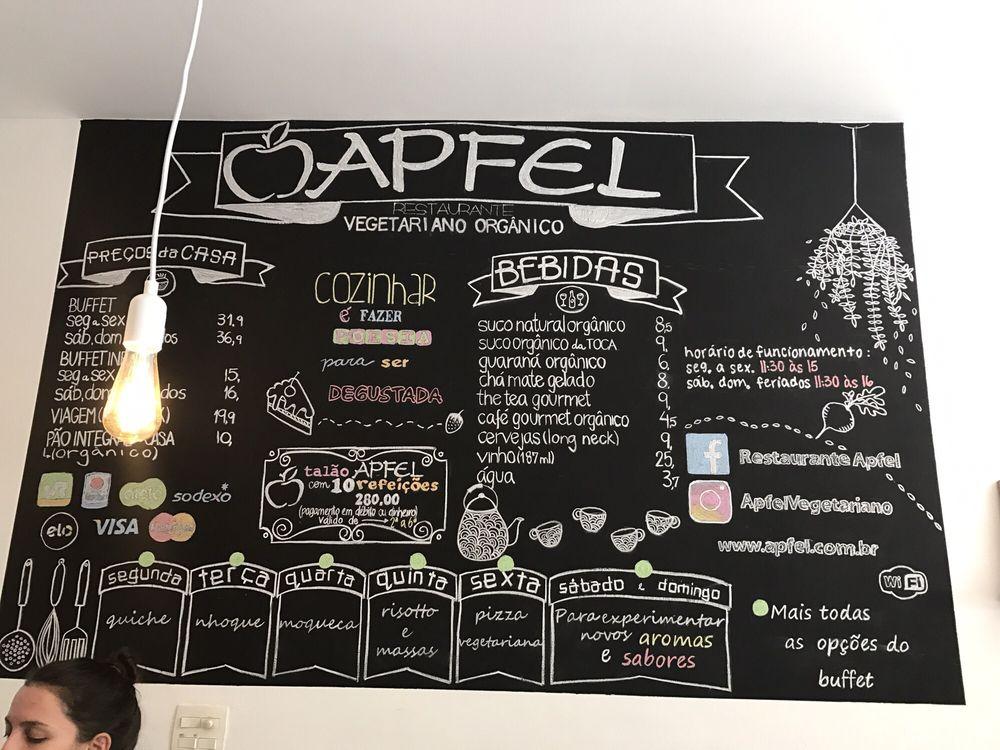 APFEL
RESTAURANTE
VEGETARIANO ORGÂNICO
PREÇOS da CASA
BUFFET
seg a sex 31,9
sáb, dom, 36,9
BUFFET
seg a sex 15,
sáb, dom, 16,
VIAGEM 19,9
PÃO CASA 10,
(orgânico)
sodexo
elo
VISA
COZINHAR
é FAZER
POESIA
para ser
DEGUSTADA
talão APFEL
com 10 refeições
280,00
(pagamento em débito ou dinheiro)
válido de 2ª a 6ª
BEBIDAS
suco natural orgânico 8,5
suco orgânico da TOCA 9,
guaraná orgânico 6,
chá mate gelado 8,
the tea gourmet 9,
café gourmet orgânico 4,5
cervejas (long neck) 9,
vinho (187ml) 25,
água 3,7
horário de funcionamento:
seg, a sex. 11:30 às 15
sáb, dom, feriados 11:30 às 16
f Restaurante Apfel
ApfelVegetariano
www.apfel.com.br
Wi Fi
segunda
quiche
terça
nhoque
quarta
moqueca
quinta
risotto
e
massas
sexta
pizza
vegetariana
sábado e domingo
Para experimentar
novos aromas
e sabores
Mais todas
as opções do
buffet